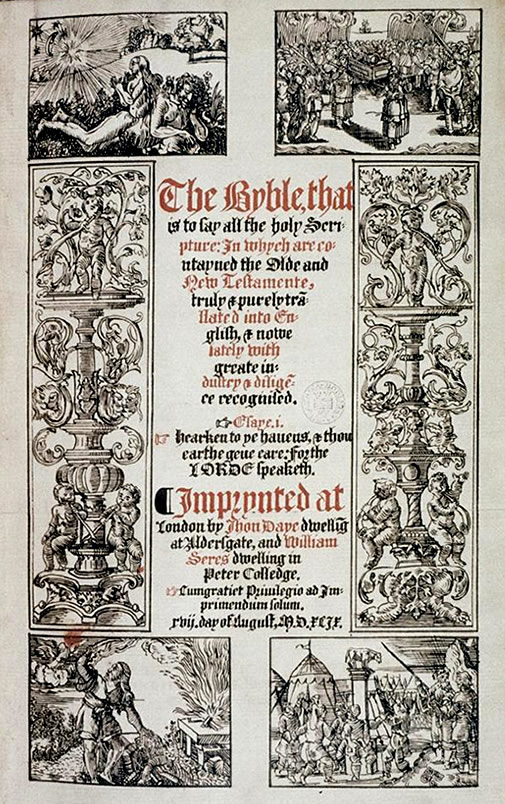 The Byble, that
is to say all the holy Scri-
pture: In whych are co-
ntayned the Olde and
New Testamente,
truly & purely trā-
slated into En-
glish, & nowe
lately with
greate in-
dustry & diligē-
ce recognised.
☞Esaye. i.
☞ Hearken to ye heuens, & thou
earthe geue eare: For the
LORDE speaketh.
¶Imprynted at
London by Jhon Daye dwellīg
at Aldersgate, and William
Seres dwelling in
Peter Colledge.
☞Cumgratiet Priuilegio ad Im-
primendum solum.
xvij. day of August, M.D.XLIX.